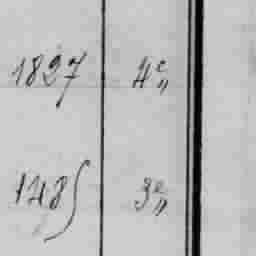 1827 4e„
1485 3e„